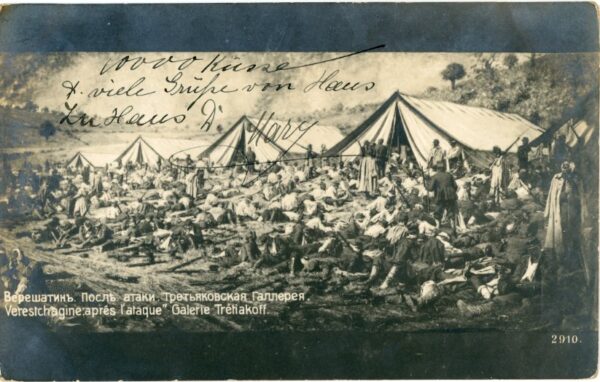 10000 Küsse
& viele Grüße von Haus
zu Haus D. Mary
Верещагинъ. Послѣ атаки. Третьяковская Галлерея.
Verestchagine: après l'ataque" Galerie Trétiakoff.
2910.